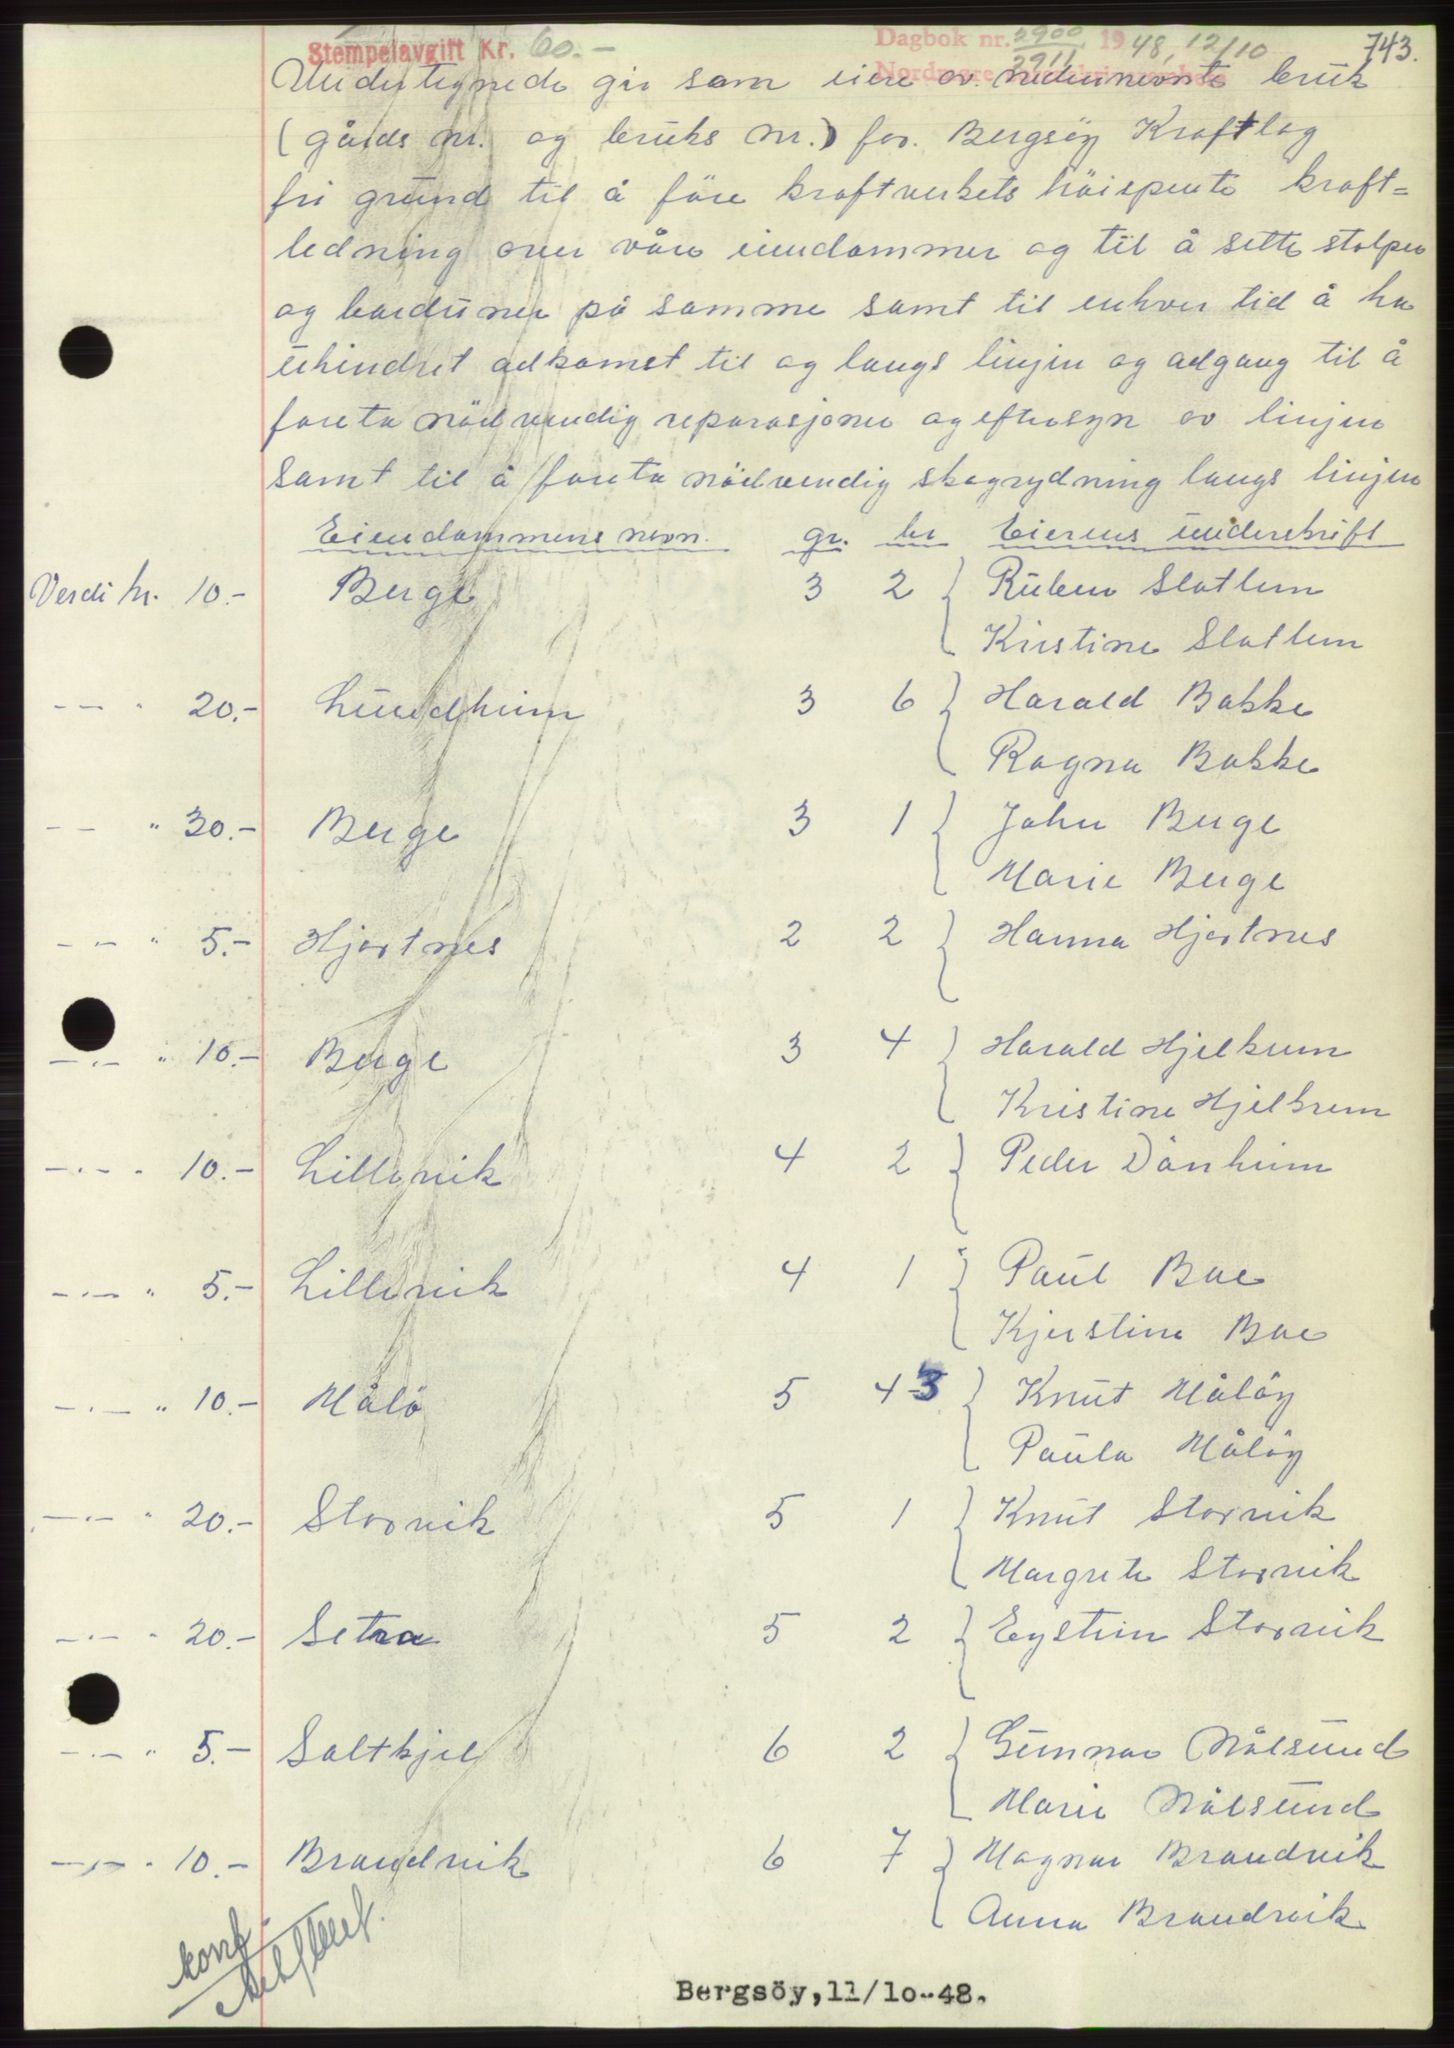 Stempelavgift Kr. 60.- Dagbok nr. 2900 1948, 12/10 743.
2911
Undertegnede gir som eiere av nedennevnte bruk
(gårds nr. og bruks nr.) for. Bergsöy Kraftlag
fri grund til å före kraftverkets höispente kraft=
ledning over våre eiendommer og til å sette stolper
og barduner på samme samt til enhver tid å ha
uhindret adkomst til og langs linjen og adgang til å
foreta nödvendig reparasjoner og eftersyn av linjen
samt til å foreta nödvendig skogrydning langs linjen
Eiendommens navn. gr. br Eierens underskrift
Verdi kr. 10.- Berge 3 2 { Ruben Slatlem
Kristine Slatlem
-"- " 20.- Lundheim 3 6 } Harald Bakke
Ragna Bakke
-"- " 30.- Berge 3 1 { John Berge
Marie Berge
-"- " 5.- Hjortnes 2 2 } Hanna Hjortnes
-"- " 10.- Berge 3 4 } Harald Hjelkrem
Kristine Hjelkrem
-"- " 10.- Lillevik 4 2 } Peder Dönheim
-"- " 5.- Lillevik 4 1 } Paul Boe
Kjerstine Boe
-"- " 10.- Målö 5 4-3 } Knut Målöy
Paula Målöy
-"- " 20.- Storvik 5 1 } Knut Storvik
Margrete Storvik
-"- " 20.- Setra 5 2 } Eystein Storvik
-"- " 5.- Saltkjel 6 2 { Gunnar Målsund
Marie Målsund
-"- " 10.- Brandvik 6 7 } Magnar Brandvik
Anna Brandvik
konf.
Bergsöy,11/10-48.